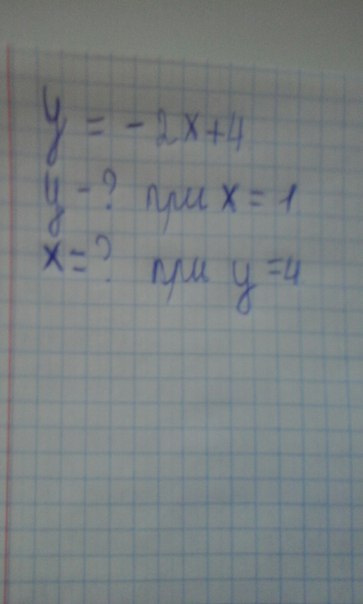 y = -2x+4
y - ? при x = 1
x = ? при y = 4